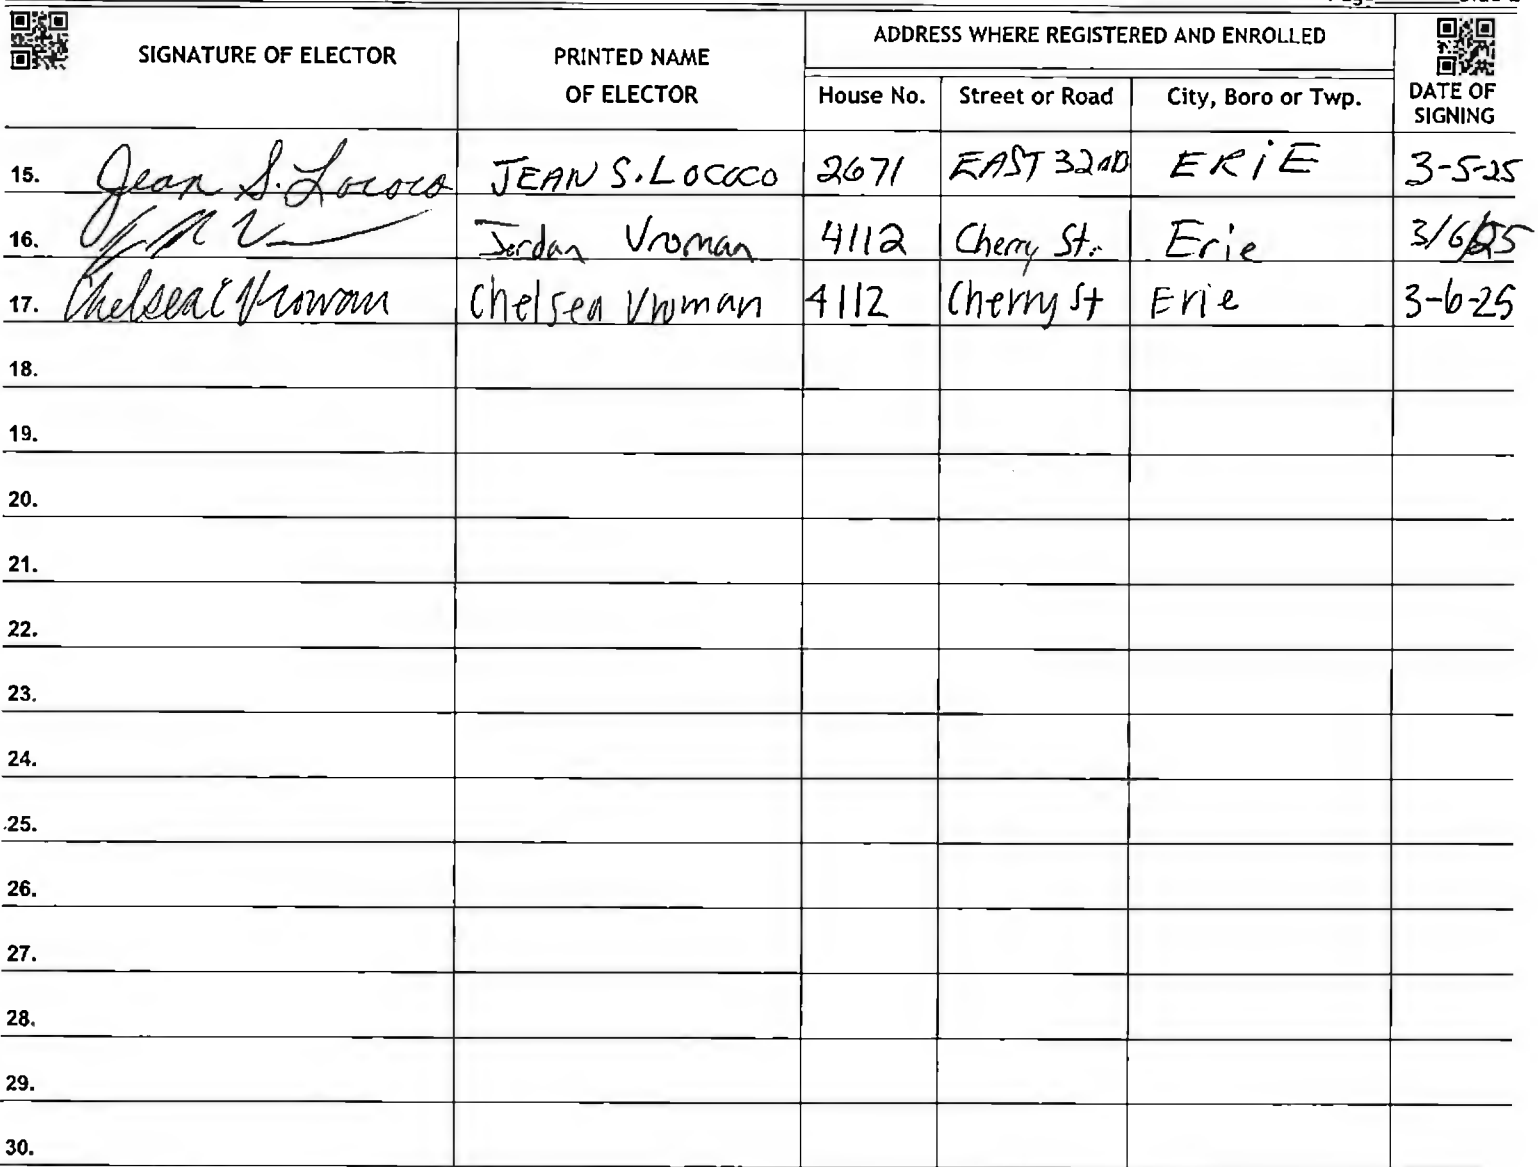 SIGNATURE OF ELECTOR PRINTED NAME OF ELECTOR ADDRESS WHERE REGISTERED AND ENROLLED
House No. Street or Road City, Boro or Twp. DATE OF SIGNING
15. Jean S. Lococo JEAN S. LOCOCO 2671 EAST 32ND ERiE 3-5-25
16. Jordan Vroman 4112 Cherry St. Erie 3/6/25
17. Chelsea C Vroman Chelsea Vroman 4112 Cherry St Erie 3-6-25
18.
19.
20.
21.
22.
23.
24.
25.
26.
27.
28.
29.
30.